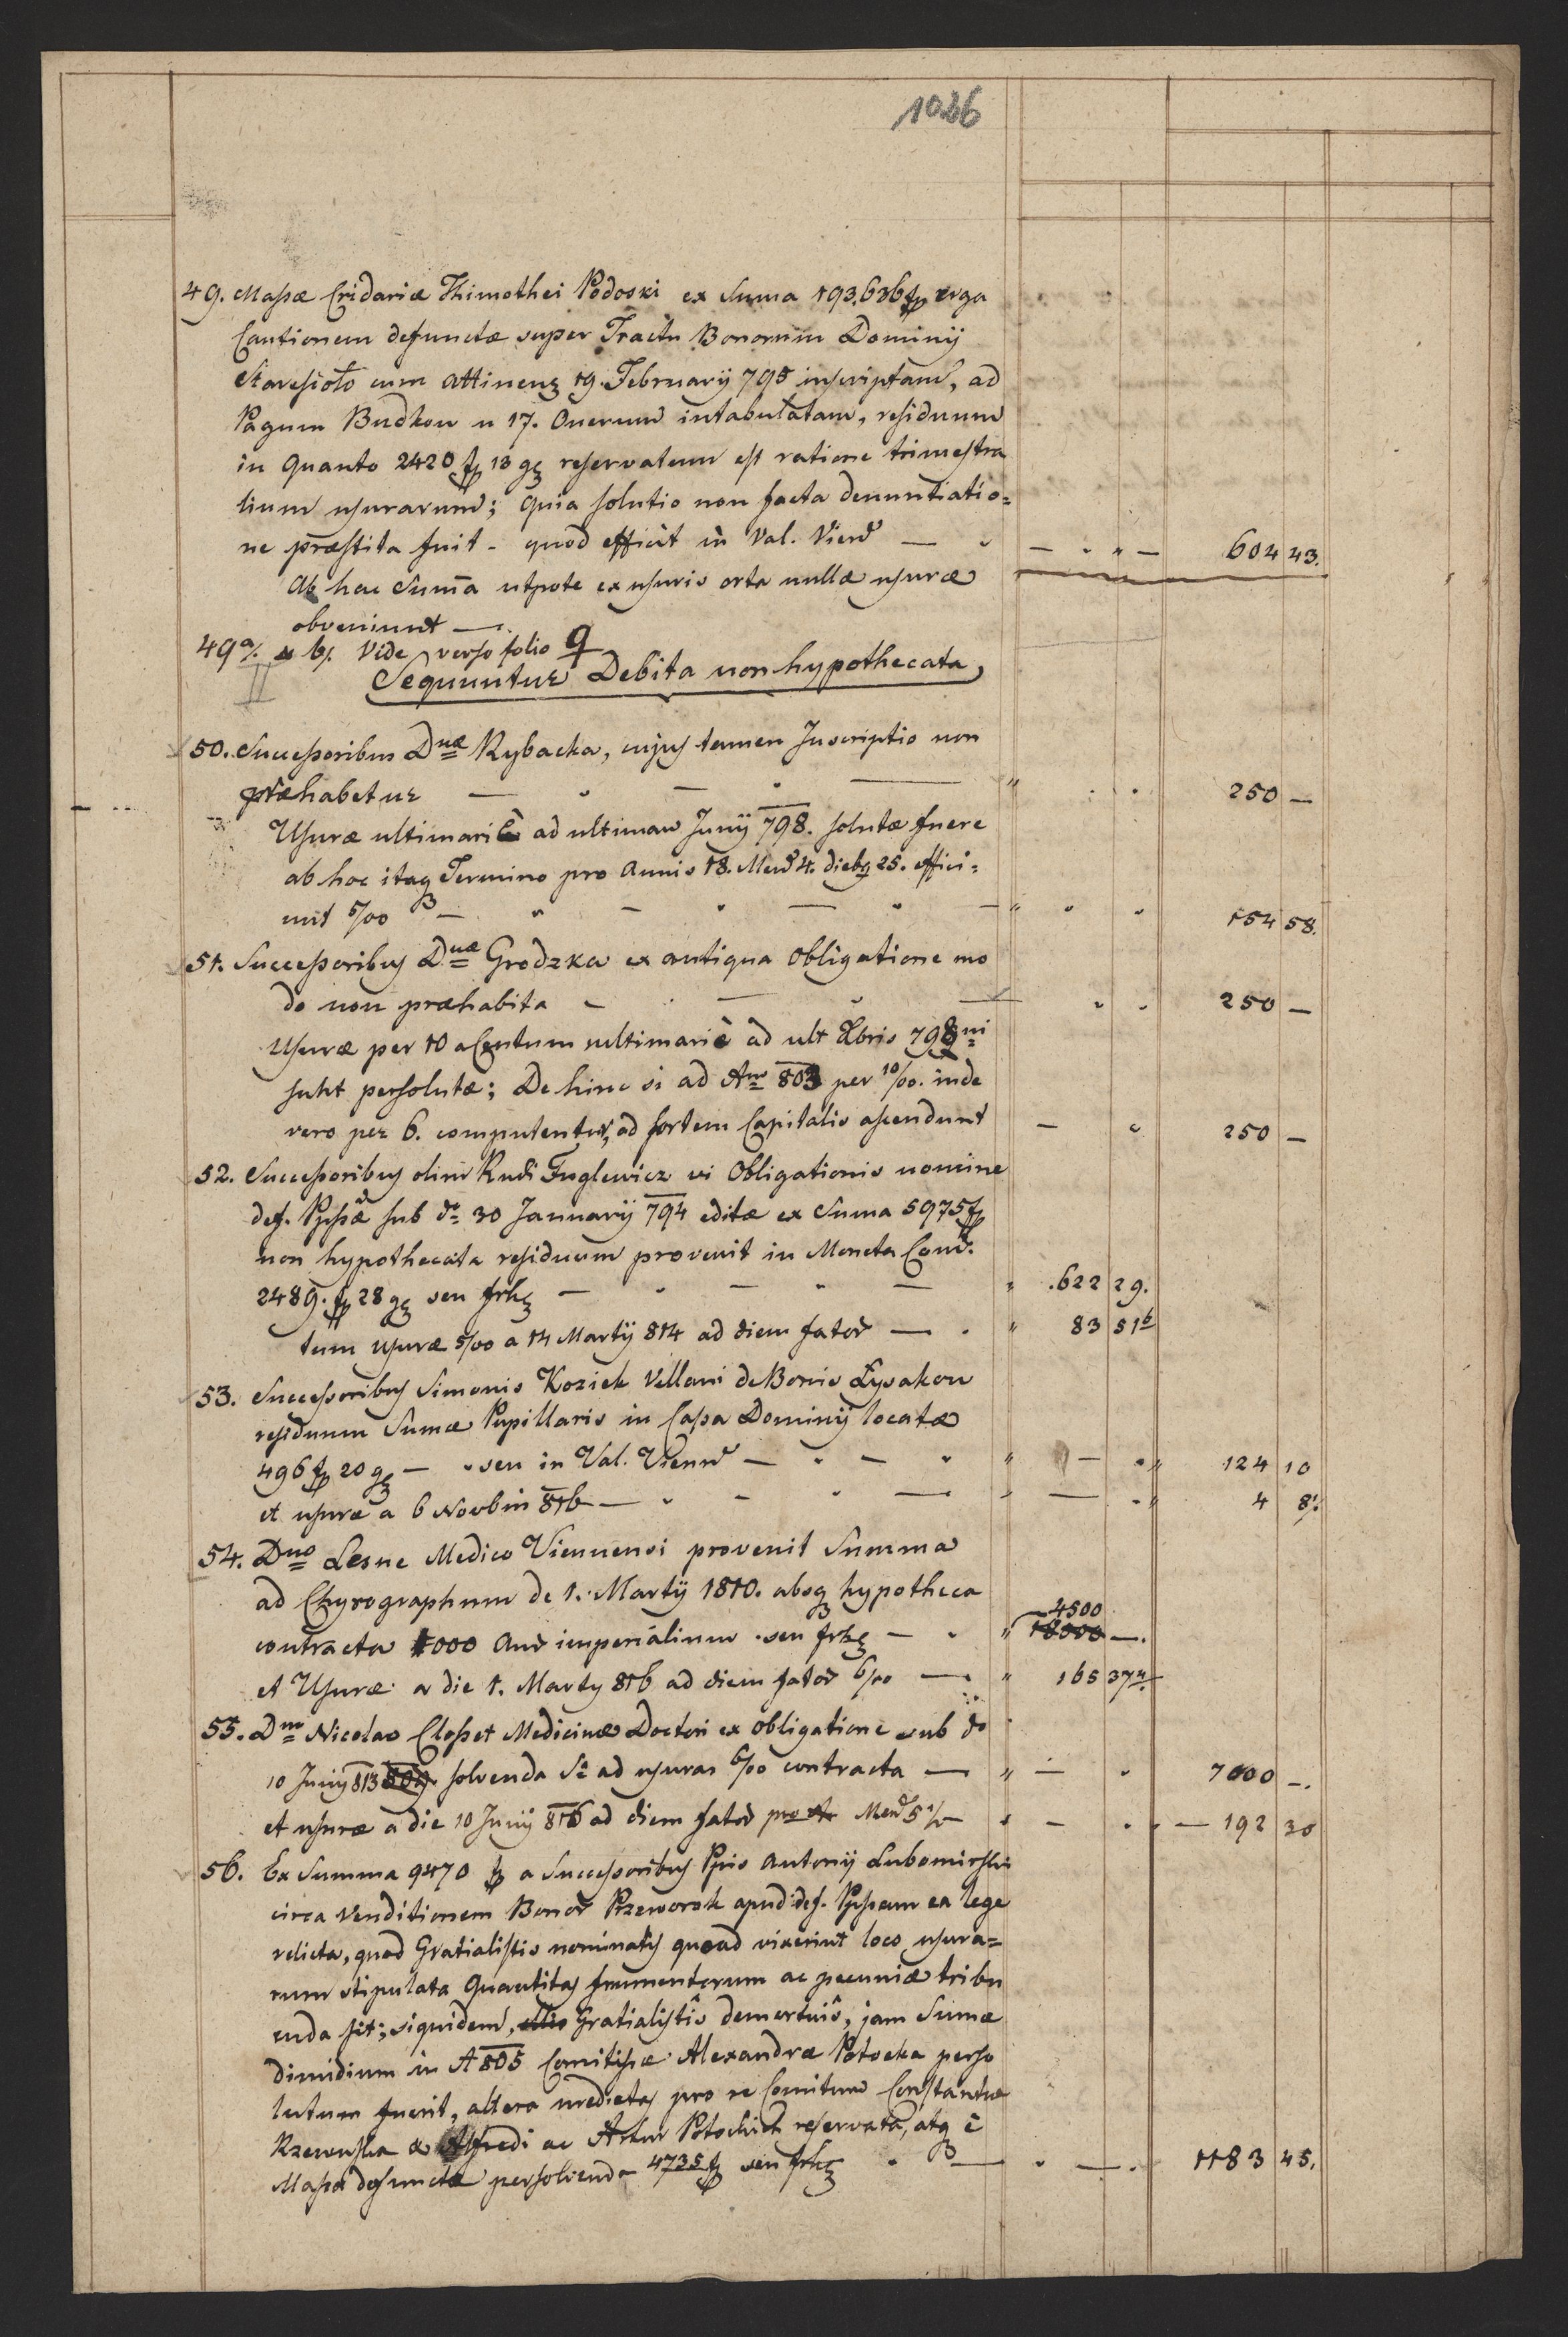 1026
49. Massæ Cridariæ Thimothei Podoski ex Suma 193.636 fp erga
Cautionem defunctæ super Tractu Bonorum Dominÿ
cum Attinenz 19. Februarÿ 795 inscriptam, ad
Pagum Budkow n 17. Onerum intabulatam, residuum
in Quanto 2420 fp 13 gz reservatum est ratione trimestra
lium usurarum; quia solutio non facta denuntiatio=
ne præstita fuit - quod efficit in Val. Vien̄ — 604 43.
Ab hac Sum̄a utpote ex usuris orta nullæ usuræ
obveniunt —.
49 a/. & b/. Vide verso folio 9
Sequuntur Debita non hypothecata,
50. Successoribus Dnæ Rybacka, cujus tamen Inscriptio non
præhabetur — 250 —
Usuræ ultimariè ad ultimam Junÿ 798. solutæ fuere
ab hoc itaq Termino pro Annis 18. Mens 4. diebq 25. effici=
unt 5/00 — 154 58.
51. Successoribus Dnæ Grodzka ex antiqua Obligatione mo
do non præhabita — 250 —
Usuræ per 10 a Centum ultimariè ad ult Xbris 798 ni
sunt persolutæ; De hinc si ad Am 803 per 10/00. inde
vero per 6. computentur, ad sortem Capitalis ascendunt — 250 —
52. Successoribus olim Rudi Fuglewicz vi Obligationis nomine
def. Ppssæ sub do 30 Januarÿ 794 editæ ex Suma 5975 fp
non hypothecata residuum provenit in Moneta Conv.
2489. fp 28 gz seu frhz — .622 29.
tum usuræ 5/00 a 14 Martÿ 814 ad diem fator — 83 51
53. Successoribus Simonis Koziek Villani de Bonis Łysakow
residuum Sumæ Pupillaris in Cassa Dominÿ locatæ
496 fp 20 gz — seu in Val. Vienn — 124 10
et usuræ a 6 Novbris 816 — 4 8
54. Dno Lesne Medico Viennensi provenit Summa
ad Chyrographum de 1. Martÿ 1810. absq hypotheca
4500
contracta 1000 Aur imperialium seu frhz — 18000 —.
et Usuræ a die 1. Marty 816 ad diem fator 6/00 — 165 37
55. Dno Nicolao Closset Medicinæ Doctori ex obligatione sub do
10 Junÿ 813 809. solvenda ad usuras 6/00 contracta — 7000 —.
et usuræ a die 10 Junÿ 816 ad diem fator pro Mens 5 — 192 30
56. Ex Summa 9470 fp a Successoribus Ppis Antonÿ Lubomirski
circa Venditionem Bonor Przeworsk apud def. Ppssam ea lege
relicta, quod Gratialistis nominatis quoad vixerint loco usura=
rum stipulata Quantitas frumentorum ac pecuniæ tribu
enda sit; siquidem, illis Gratialistis demortuis, jam Sumæ
dimidium in A 805 Comitissæ Alexandræ Potocka perso
lutum fuerit, altera medietas pro re Comitum Constantiæ
Rzewuska & Alfredi ac Artur Potockich reservata, atq è
Massa defunctæ persolvenda 4735 fp seu frhz — 1183 45.